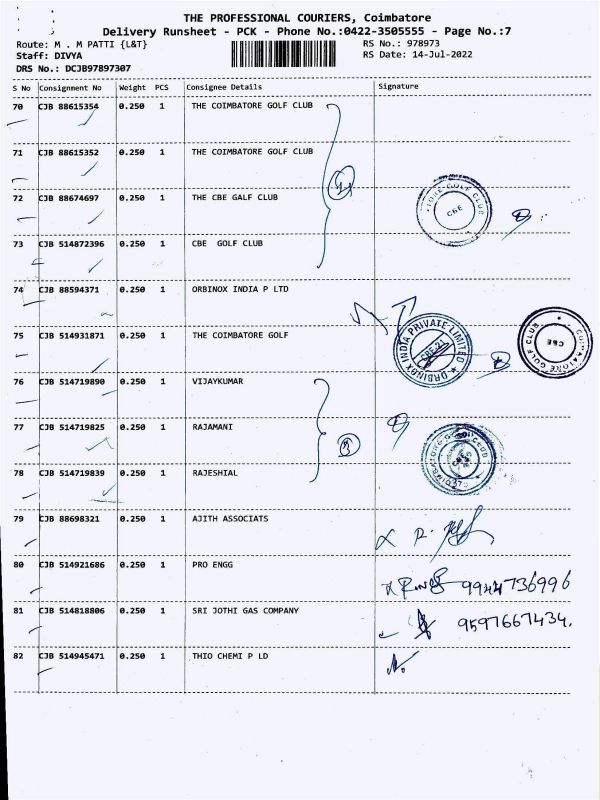 THE PROFESSIONAL COURIERS, Coimbatore
Delivery Runsheet - PCK - Phone No.:0422-3505555 - Page No.:7
Route: M . M PATTI {L&T} RS No.: 978973
Staff: DIVYA RS Date: 14-Jul-2022
DRS No.: DCJB97897307
S No Consignment No Weight PCS Consignee Details Signature
70 CJB 88615354 0.250 1 THE COIMBATORE GOLF CLUB
71 CJB 88615352 0.250 1 THE COIMBATORE GOLF CLUB
72 CJB 88674697 0.250 1 THE CBE GALF CLUB
73 CJB 514872396 0.250 1 CBE GOLF CLUB
74 CJB 88594371 0.250 1 ORBINOX INDIA P LTD
ORBINOX INDIA PRIVATE LIMITED
CBE-21
COIMBATORE GOLF CLUB
CBE
75 CJB 514931871 0.250 1 THE COIMBATORE GOLF
76 CJB 514719890 0.250 1 VIJAYKUMAR
77 CJB 514719825 0.250 1 RAJAMANI
78 CJB 514719839 0.250 1 RAJESHIAL
79 CJB 88698321 0.250 1 AJITH ASSOCIATS
80 CJB 514921686 0.250 1 PRO ENGG 9944736996
81 CJB 514818806 0.250 1 SRI JOTHI GAS COMPANY 9597667434.
82 CJB 514945471 0.250 1 THIO CHEMI P LD